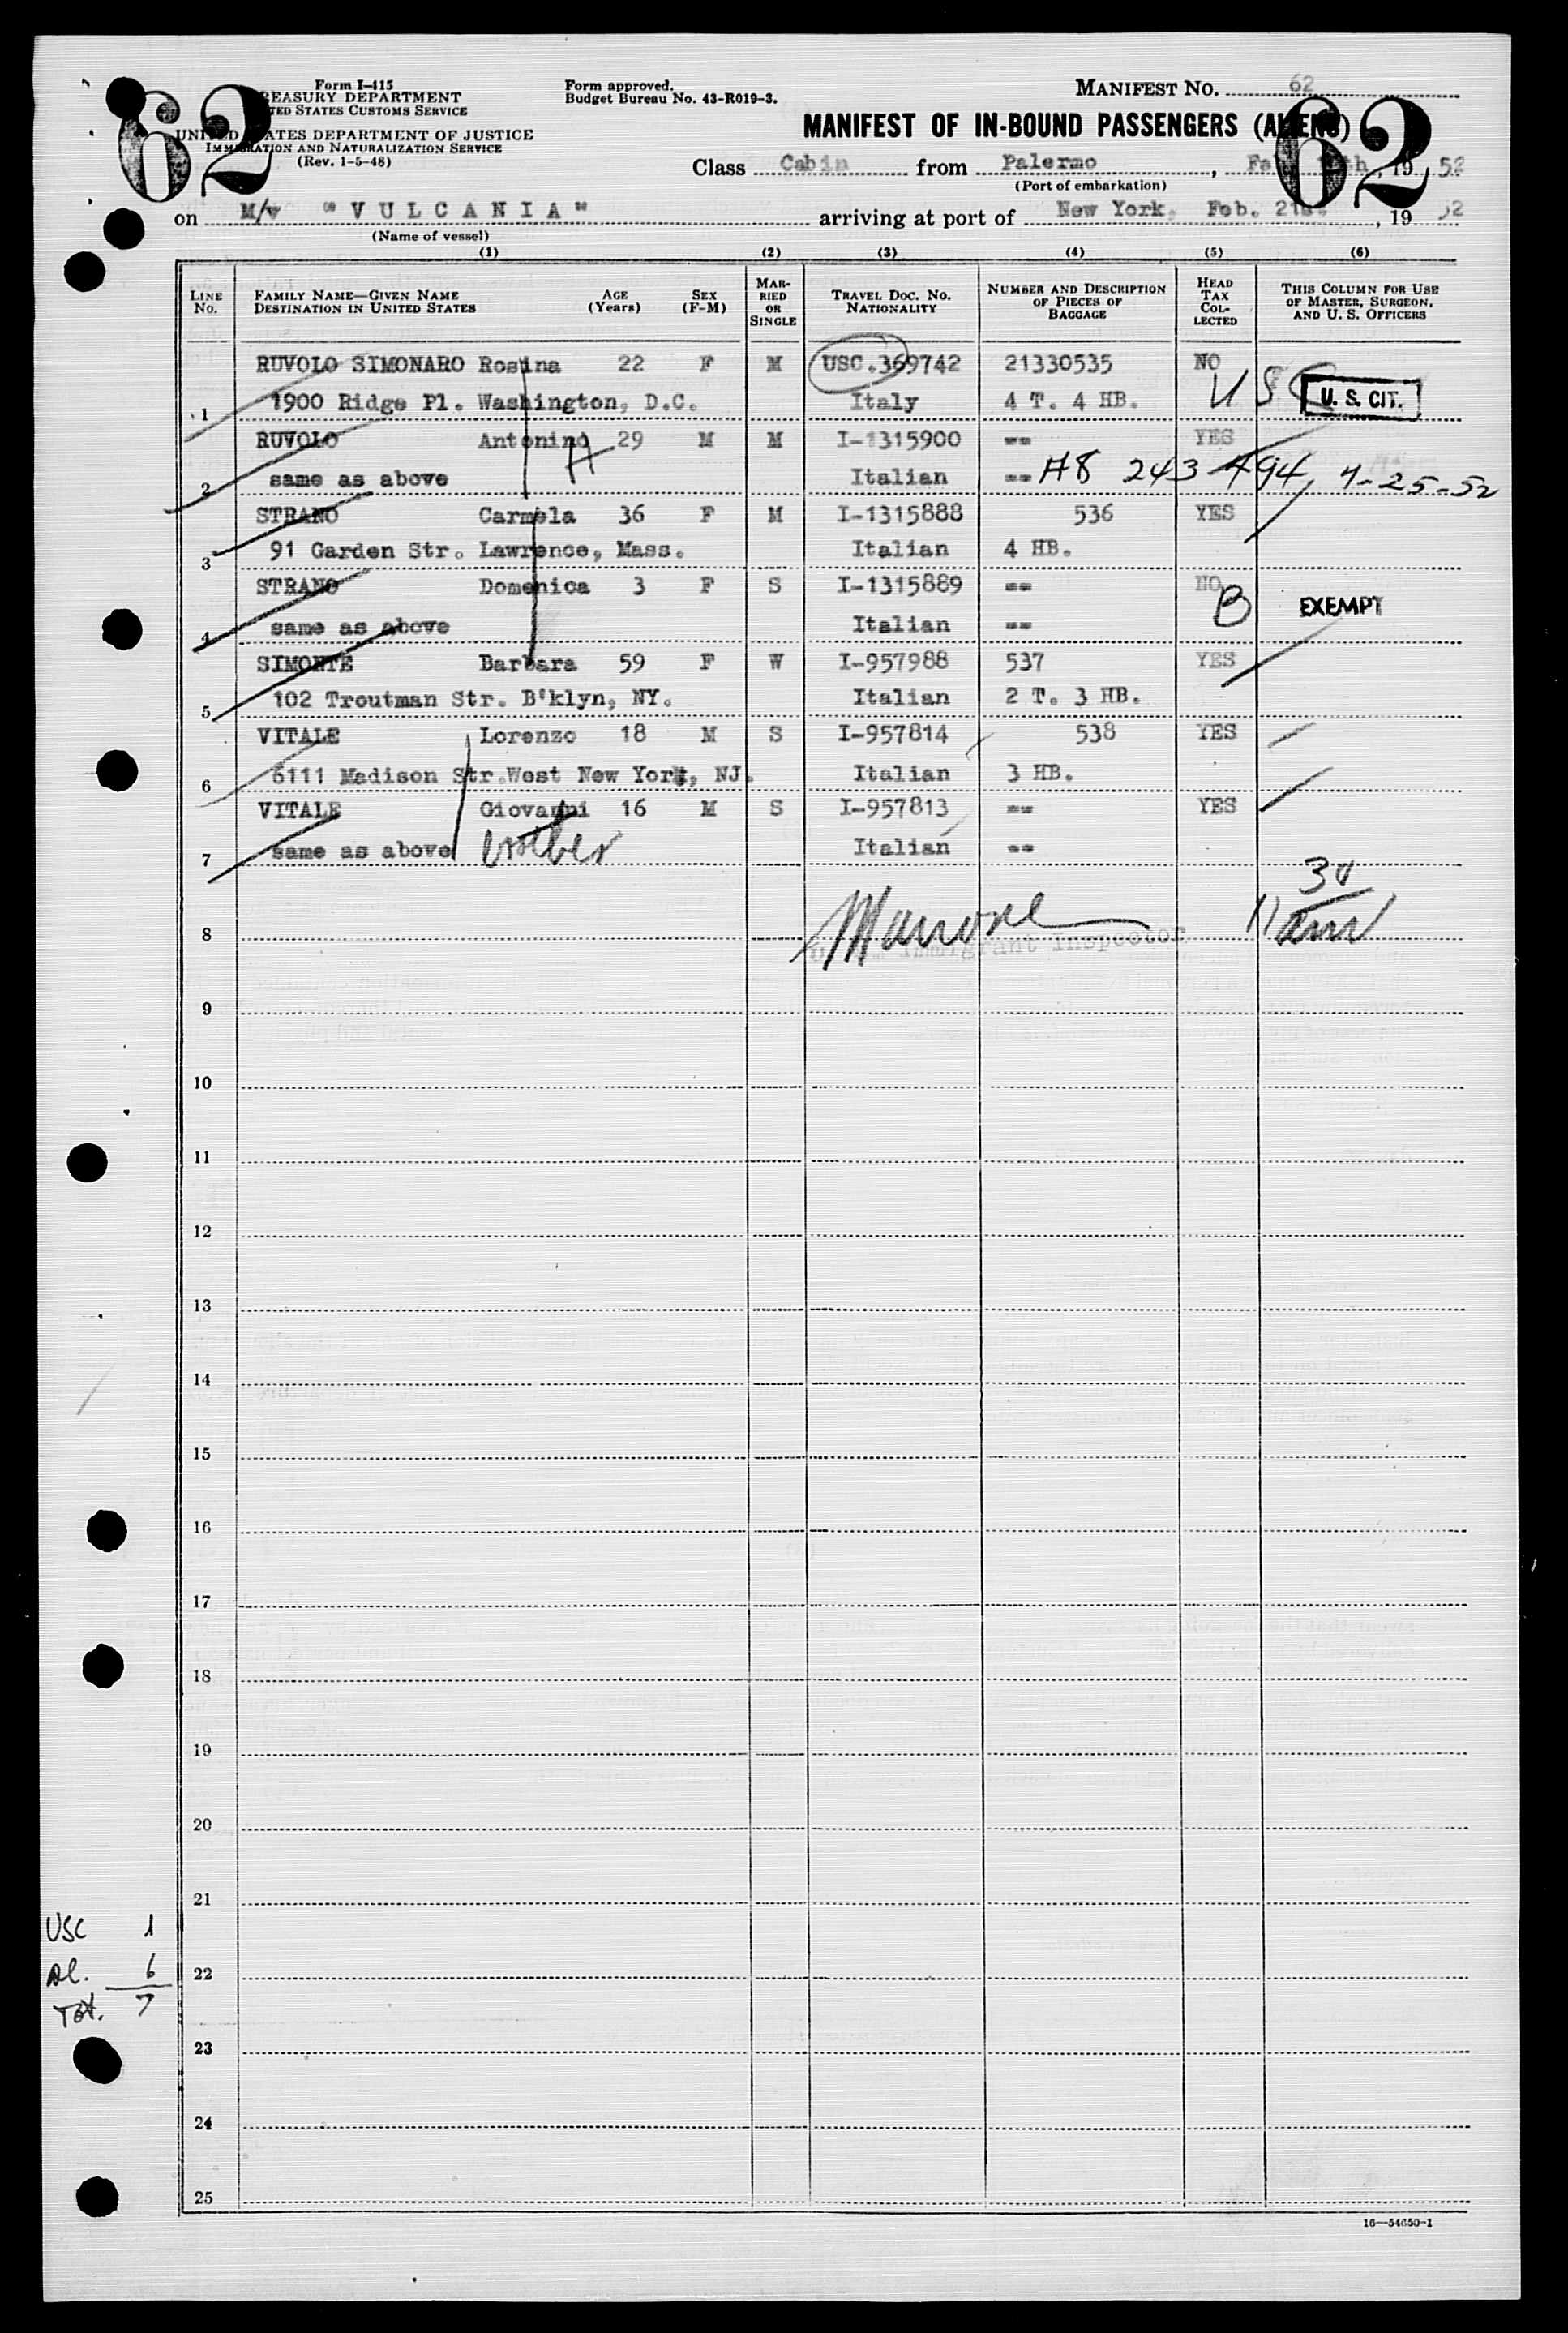 62
62
Form I-415
TREASURY DEPARTMENT
UNITED STATES CUSTOMS SERVICE
UNITED STATES DEPARTMENT OF JUSTICE
IMMIGRATION AND NATURALIZATION SERVICE
(Rev. 1-5-48)
Form approved.
Budget Bureau No. 43-R019-3.
MANIFEST NO. 62
MANIFEST OF IN-BOUND PASSENGERS (ALIENS)
Class Cabin from Palermo, 1952
(Port of embarkation)
on M/v "VULCANIA" arriving at port of New York, Feb. 21st, 1952
(Name of vessel)
(1) (2) (3) (4) (5) (6)
LINE NO.
FAMILY NAME—GIVEN NAME
DESTINATION IN UNITED STATES
AGE (Years)
SEX (F-M)
MARRIED OR SINGLE
TRAVEL DOC. NO. NATIONALITY
NUMBER AND DESCRIPTION OF PIECES OF BAGGAGE
HEAD TAX COLLECTED
THIS COLUMN FOR USE OF MASTER, SURGEON, AND U. S. OFFICERS
RUVOLO SIMONARO Rosina 22 F M USC.369742 21330535 NO
1 1900 Ridge Pl. Washington, D.C. Italy 4 T. 4 HB. USC U. S. CIT.
RUVOLO Antonino 29 M M I-1315900 -- YES
A
2 same as above Italian -- A8 243 494 7-25-52
STRANO Carmela 36 F M I-1315888 536 YES
3 91 Garden Str. Lawrence, Mass. Italian 4 HB.
STRANO Domenica 3 F S I-1315889 -- NO
B EXEMPT
4 same as above Italian --
SIMONTE Barbara 59 F W I-957988 537 YES
5 102 Troutman Str. B'klyn, NY. Italian 2 T. 3 HB.
VITALE Lorenzo 18 M S I-957814 538 YES
6 6111 Madison Str.West New York, NJ. Italian 3 HB.
VITALE Giovanni 16 M S I-957813 -- YES
7 same as above Italian --
8 Immigrant Inspector
9
10
11
12
13
14
15
16
17
18
19
20
21
USC 1
22
Al. 6
Tot. 7
23
24
25
16—54650-1